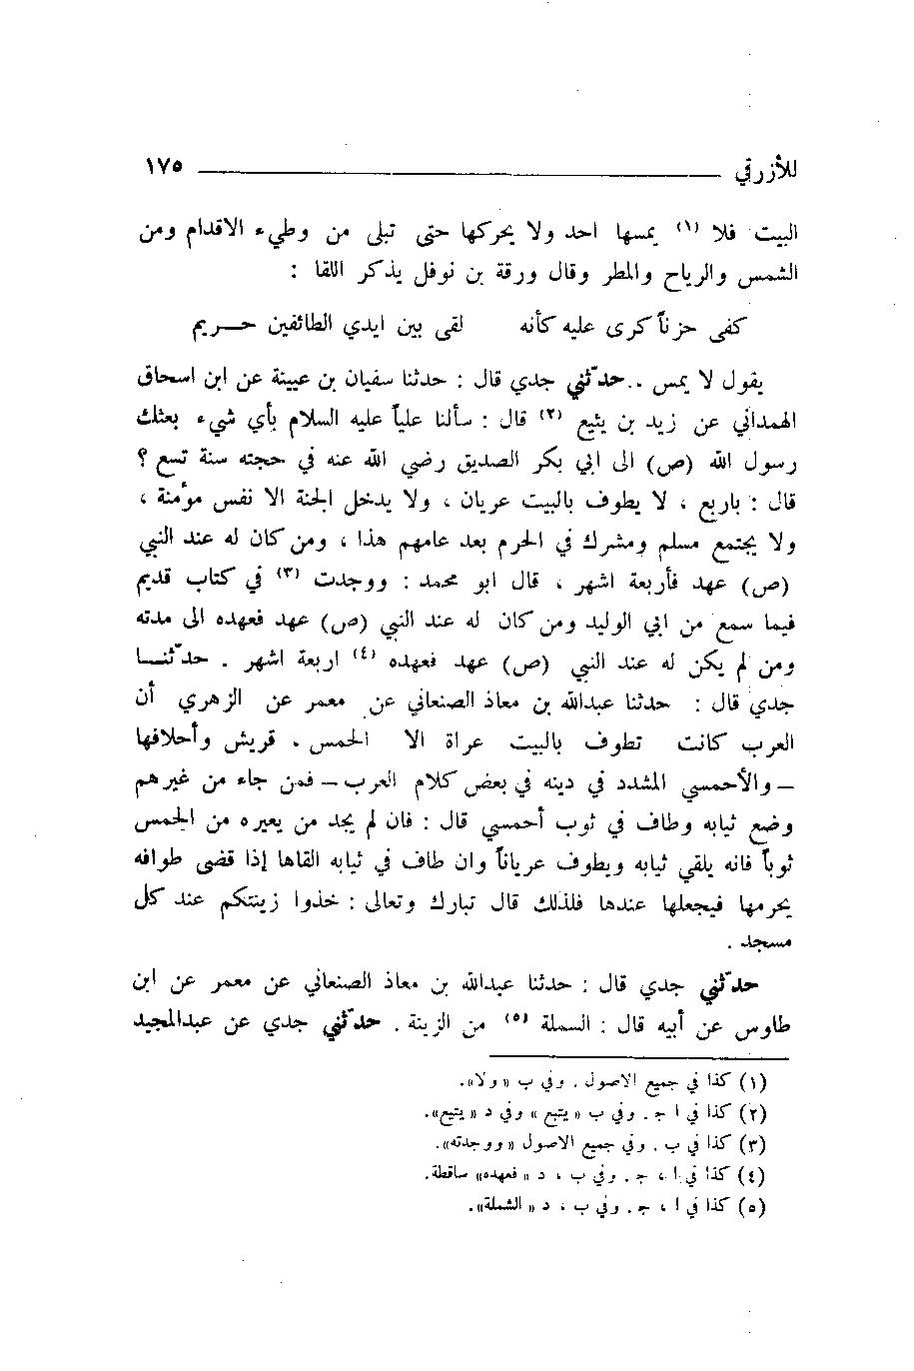 للأزرقي ١٧٥
البيت فلا (١) يمسها احد ولا يحركها حتى تبلى من وطيء الاقدام ومن
الشمس والرياح والمطر وقال ورقة بن نوفل يذكر اللقا :
كفى حزناً كرى عليه كأنه لقى بين ايدي الطائفين حريم
يقول لا يمس .. حدّثني جدي قال : حدثنا سفيان بن عيينة عن ابن اسحاق
الهمداني عن زيد بن يثيع (٢) قال : سألنا علياً عليه السلام بأي شيء بعثك
رسول الله (ص) الى ابي بكر الصديق رضي الله عنه في حجته سنة تسع ؟
قال : باربع ، لا يطوف بالبيت عريان ، ولا يدخل الجنة الا نفس مؤمنة ،
ولا يجتمع مسلم ومشرك في الحرم بعد عامهم هذا ، ومن كان له عند النبي
(ص) عهد فأربعة اشهر ، قال ابو محمد : ووجدت (٣) في كتاب قديم
فيما سمع من ابي الوليد ومن كان له عند النبي (ص) عهد فعهده الى مدته
ومن لم يكن له عند النبي (ص) عهد فعهده (٤) اربعة اشهر . حدّثنا
جدي قال : حدثنا عبدالله بن معاذ الصنعاني عن معمر عن الزهري أن
العرب كانت تطوف بالبيت عراة الا الحمس . قريش وأحلافها
– والأحمسي المشدد في دينه في بعض كلام العرب – فمن جاء من غيرهم
وضع ثيابه وطاف في ثوب أحمسي قال : فان لم يجد من يعيره من الحمس
ثوباً فانه يلقي ثيابه ويطوف عرياناً وان طاف في ثيابه القاها إذا قضى طوافه
يحرمها فيجعلها عندها فلذلك قال تبارك وتعالى : خذوا زينتكم عند كل
مسجد .
حدّثني جدي قال : حدثنا عبدالله بن معاذ الصنعاني عن معمر عن ابن
طاوس عن أبيه قال : السملة (٥) من الزينة . حدّثني جدي عن عبدالمجيد
(١) كذا في جميع الاصول . وفي ب «ولا».
(٢) كذا في ا ج . وفي ب «يتبع» وفي د «يتيع».
(٣) كذا في ب . وفي جميع الاصول «ووجدته».
(٤) كذا في ا ، ج . وفي ب ، د «فعهده» ساقطة.
(٥) كذا في ا ، ج . وفي ب ، د «الشملة».